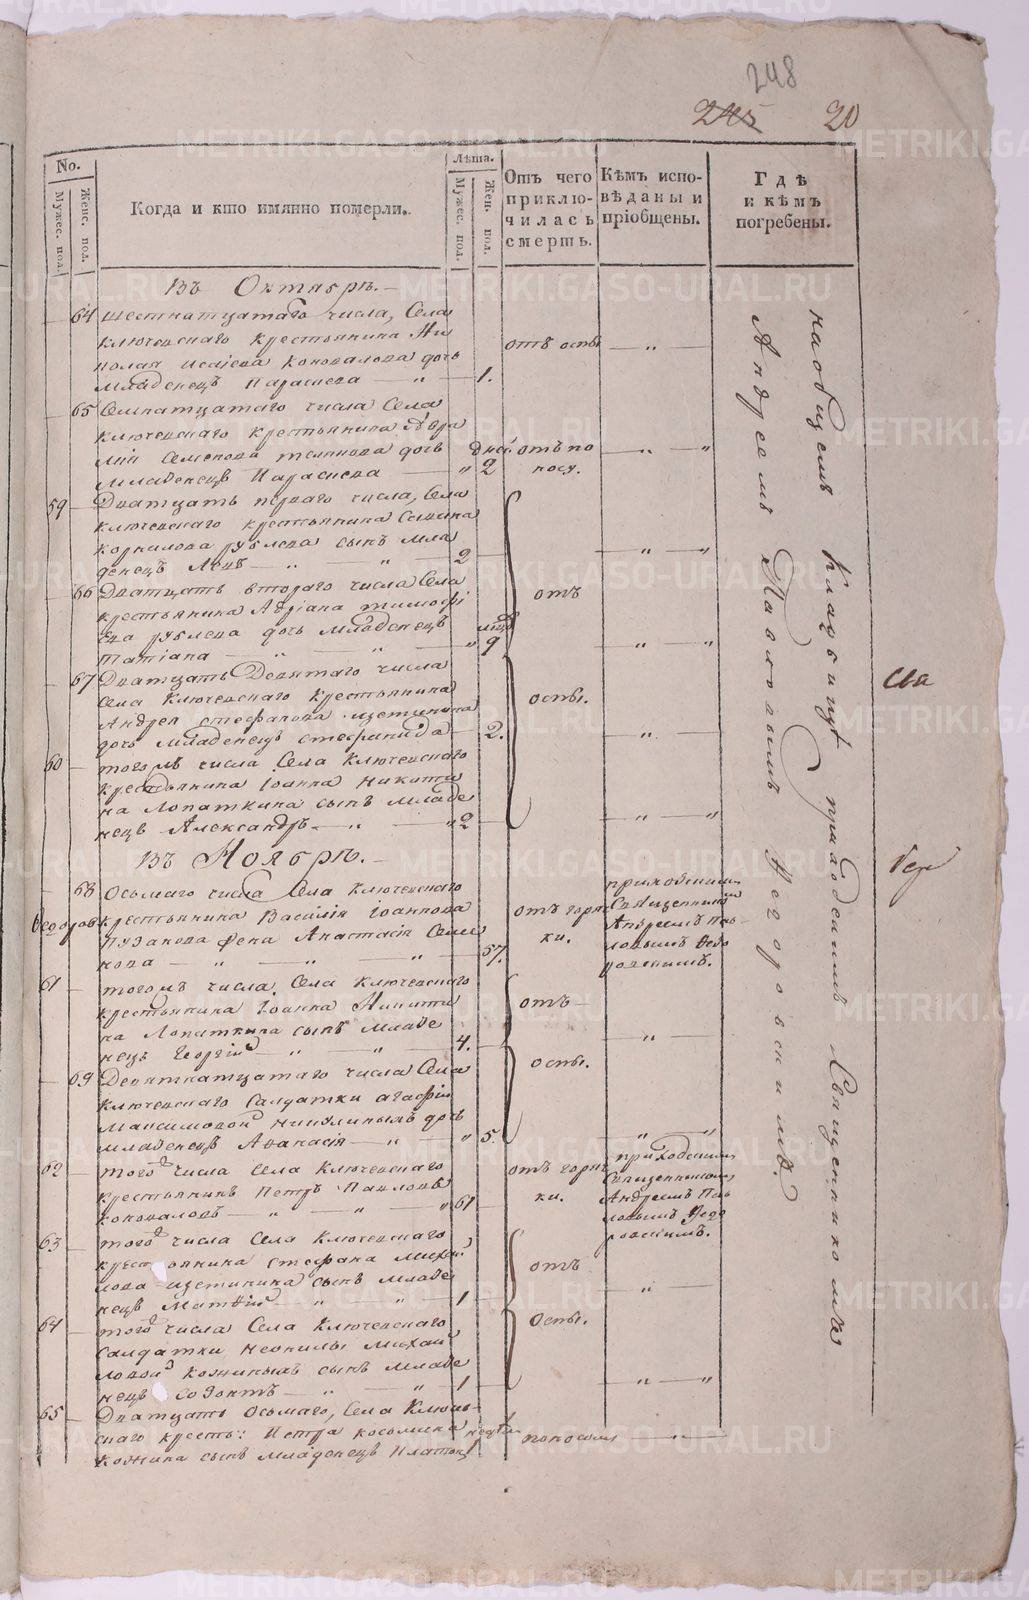 248
245 20
No.
Мужес. пол.
Женс. пол.
Когда и кто имянно померли.
Лѣта.
Мужес. пол.
Жен. пол.
Отъ чего приклю-
чилась
смерть.
Кѣмъ испо-
вѣданы и
пріобщены.
Гдѣ
и кѣмъ
погребены.
Въ Октябрѣ.
64 шестнатцатаго числа, Села
ключевскаго крестьянина Ни
колая Коновалова дочь
младенецъ Параскева 1.
отъ оспы
65 Семнатцатаго числа Села
ключевскаго крестьянина
Семенова дочь
младенецъ Параскева 2
отъ по
носу.
59 Дватцать перваго числа, Села
ключевскаго крестьянина
корнилова рублева сынъ мла
денецъ 2
66 Дватцать втораго числа Села
крестьянина Адріана тимофѣ
ева рублева дочь младенецъ
татіана 9
отъ
67 Дватцать Девятаго числа
села Ключевскаго крестьянина
Андрея стефанова щетинина
дочь младенецъ стефанида 2.
оспы.
60 тогожъ числа Села Ключевскаго
крестьянина Іоанна Никити
на Лопаткина сынъ младе
нецъ Александръ 2
Въ Ноябрѣ.
68 Осьмаго числа Села ключевскаго
крестьянина Василія Іоаннова
пузанова жена Анастасія Семе
нова 57.
отъ горяч
ки.
приходскимъ
Священникомъ
Андреемъ Пав
ловымъ
61 тогожъ числа Села Ключевскаго
крестьянина Іоанна Никити
на Лопаткина сынъ младе
нецъ Георгій 4.
отъ
69 Девятнатцатаго числа Села
ключевскаго Салдатки агафіи
Максимовой дочь
младенецъ Аѳанасія 5.
оспы.
62 того числа Села Ключевскаго
крестьянинъ Петръ Павловъ
коноваловъ 61
отъ горяч
ки.
приходскимъ
Священникомъ
Андреемъ Пав
ловымъ
63 того числа Села Ключевскаго
крестьянина стефана михай
лова щетинина сынъ младе
нецъ Матѳій 1
отъ
64 того числа Села Ключевскаго
салдатки неонилы михай
ловой сынъ младе
нецъ Созонтъ 1
Оспы.
65 Дватцать Осьмаго, Села Ключев-
скаго кресть: Петра косьмина
кожина сынъ младенецъ Платонъ
поносомъ
на общемъ кладбищѣ приходскимъ Священникомъ
Андреемъ Павловымъ